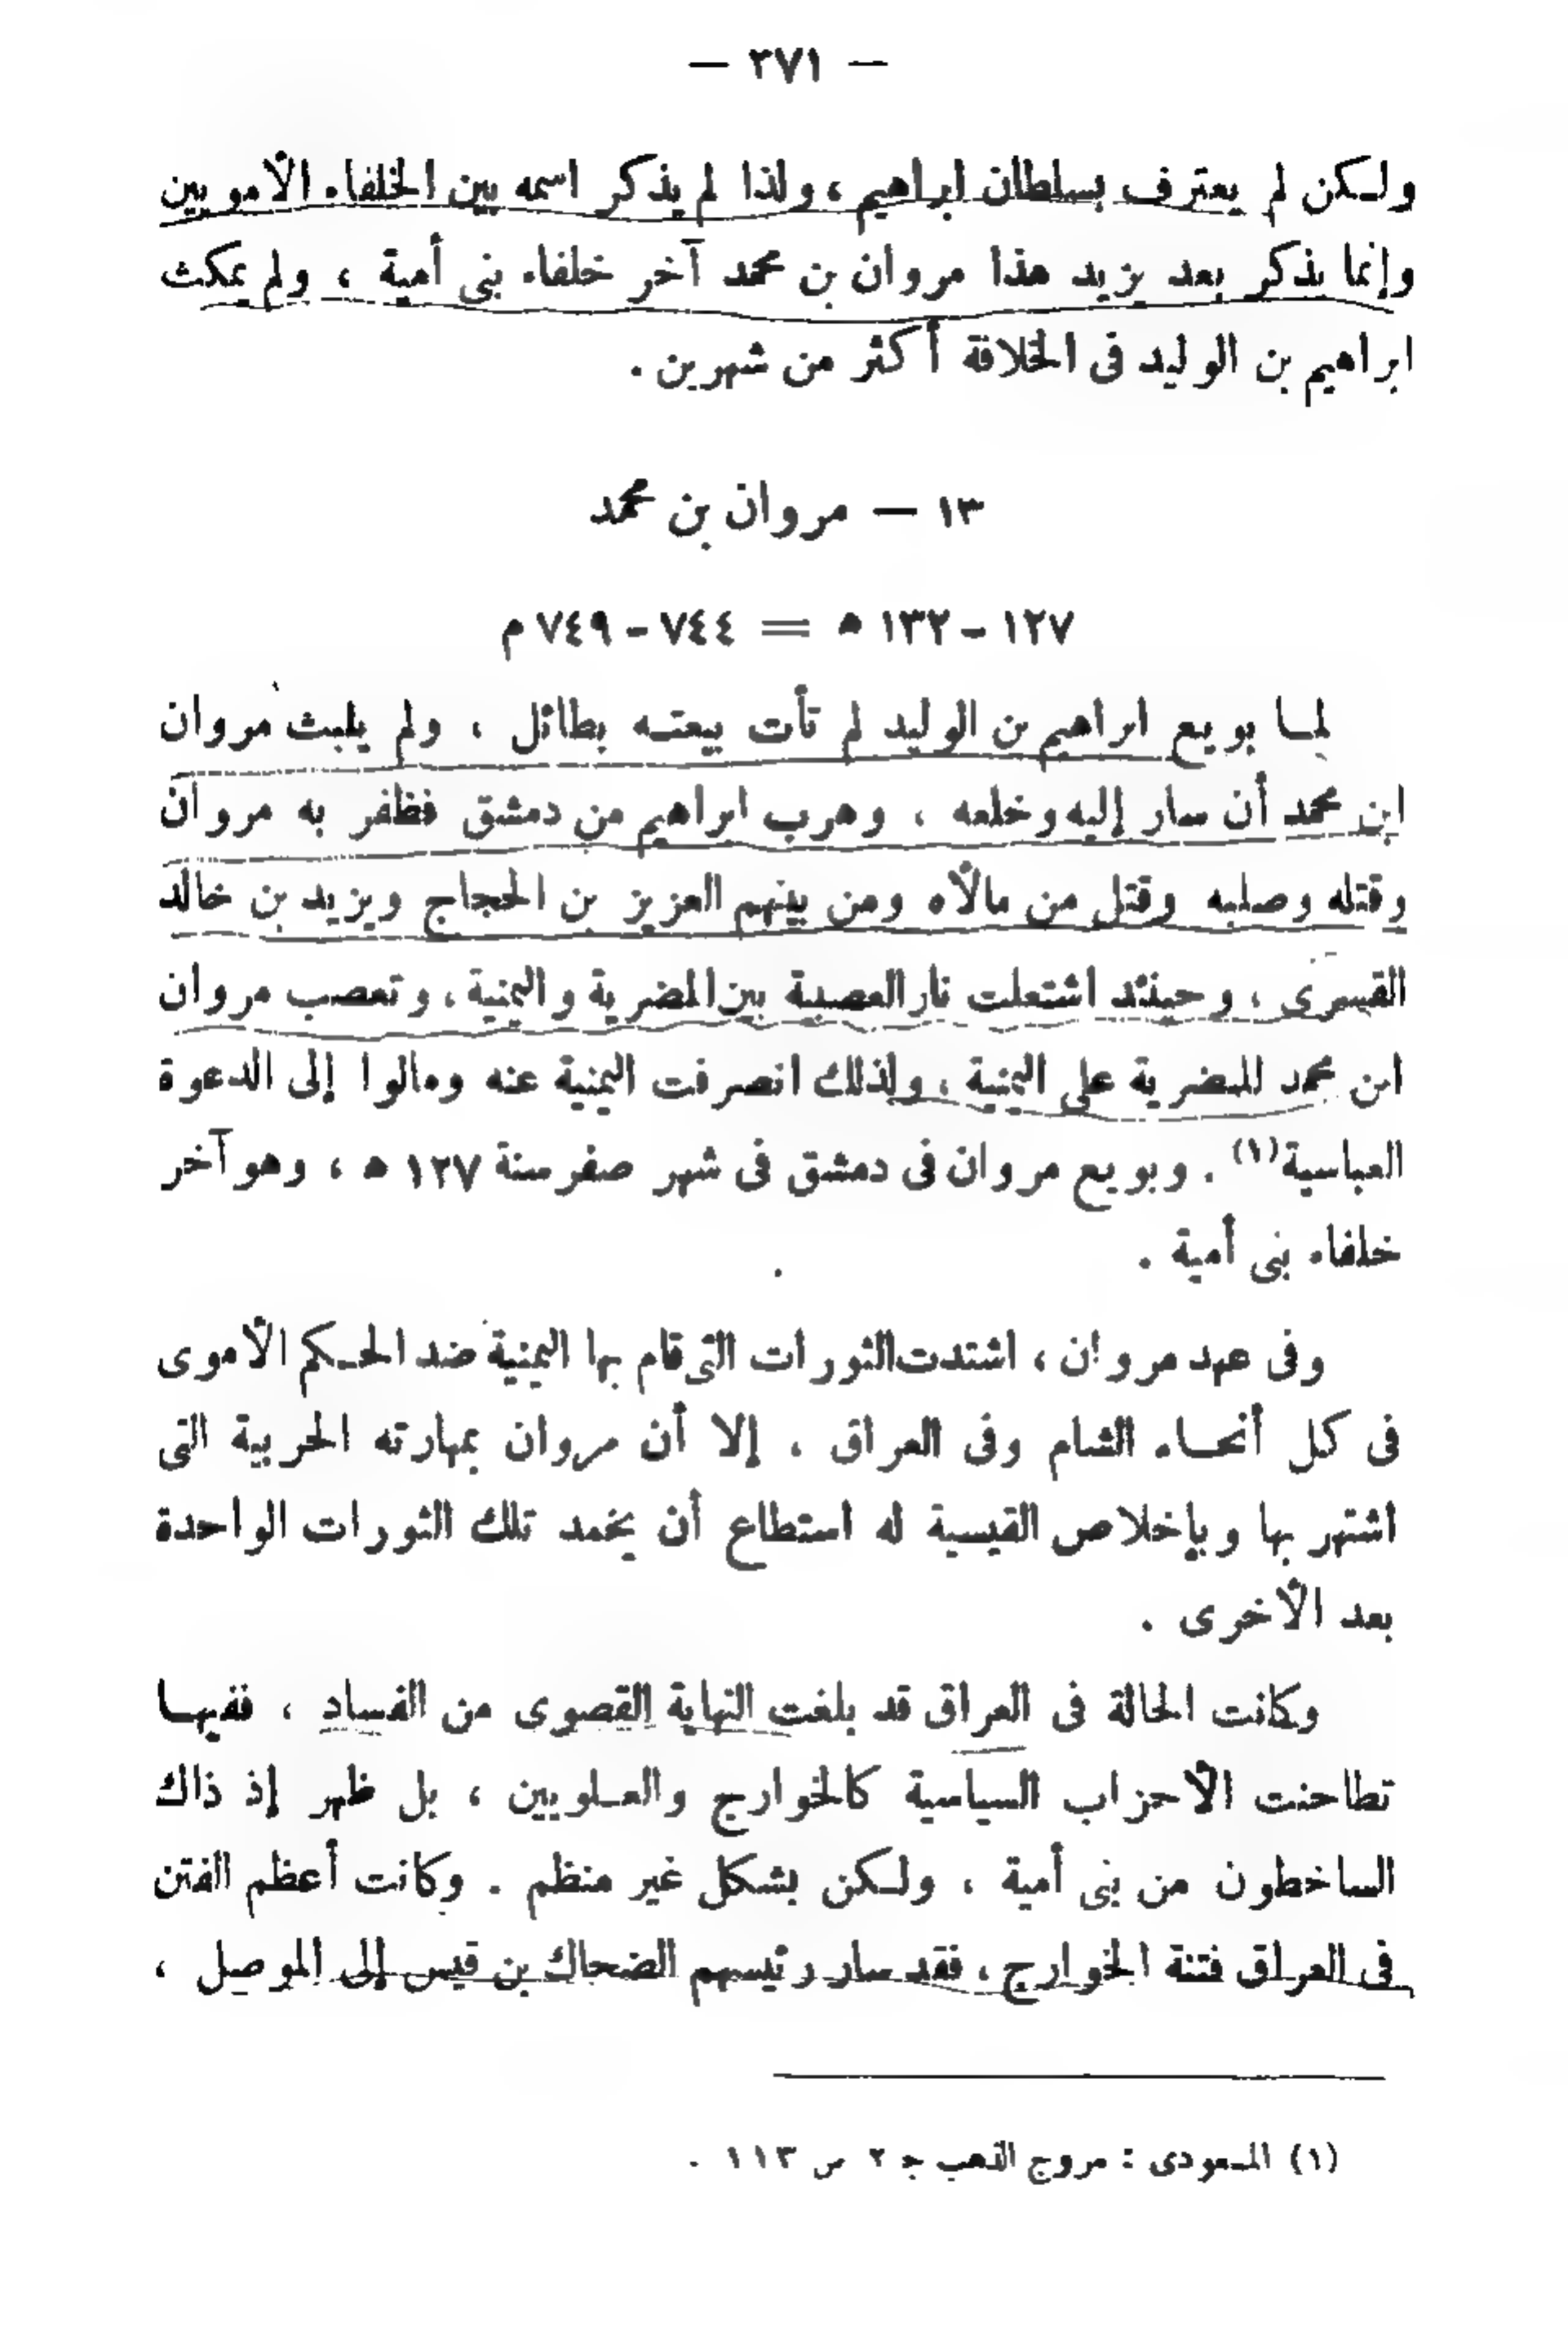 — ٢٧١ —
ولكن لم يعترف بسلطان ابراهيم ، ولذا لم يذكر اسمه بين الخلفاء الأمويين
وإنما يذكر بعد يزيد هذا مروان بن محمد آخر خلفاء بنى أمية ، ولم يمكث
ابراهيم بن الوليد فى الخلافة أكثر من شهرين .
١٣ — مروان بن محمد
١٢٧ - ١٣٢ ه = ٧٤٤ - ٧٤٩ م
لما بويع ابراهيم بن الوليد لم تأت بيعته بطائل ، ولم يلبث مروان
ابن محمد أن سار إليه وخلعه ، وهرب ابراهيم من دمشق فظفر به مروان
وقتله وصلبه وقتل من مالأه ومن بينهم العزيز بن الحجاج ويزيد بن خالد
القسرى ، وحينئذ اشتعلت نار العصبية بين المضرية واليمنية ، وتعصب مروان
ابن محمد للمضرية على اليمنية ، ولذلك انصرفت اليمنية عنه ومالوا إلى الدعوة
العباسية(١) . وبويع مروان فى دمشق فى شهر صفر سنة ١٢٧ ه ، وهو آخر
خلفاء بنى أمية .
وفى عهد مروان ، اشتدت الثورات التى قام بها اليمنية ضد الحكم الأموى
فى كل أنحاء الشام وفى العراق . إلا أن مروان بمهارته الحربية التى
اشتهر بها وبإخلاص القيسية له استطاع أن يخمد تلك الثورات الواحدة
بعد الأخرى .
وكانت الحالة فى العراق قد بلغت النهاية القصوى من الفساد ، ففيها
تطاحنت الأحزاب السياسية كالخوارج والعلويين ، بل ظهر إذ ذاك
الساخطون من بنى أمية ، ولكن بشكل غير منظم . وكانت أعظم الفتن
فى العراق فتنة الخوارج ، فقد سار رئيسهم الضحاك بن قيس إلى الموصل ،
(١) المسعودى : مروج الذهب ج ٢ ص ١١٣ .